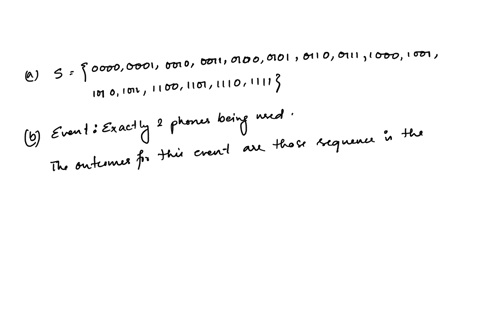 (a) S = {0000, 0001, 0010, 0011, 0100, 0101, 0110, 0111, 1000, 1001,
1010, 1011, 1100, 1101, 1110, 1111}
(b) Event: Exactly 2 phones being used.
The outcomes for this event are those sequence in the